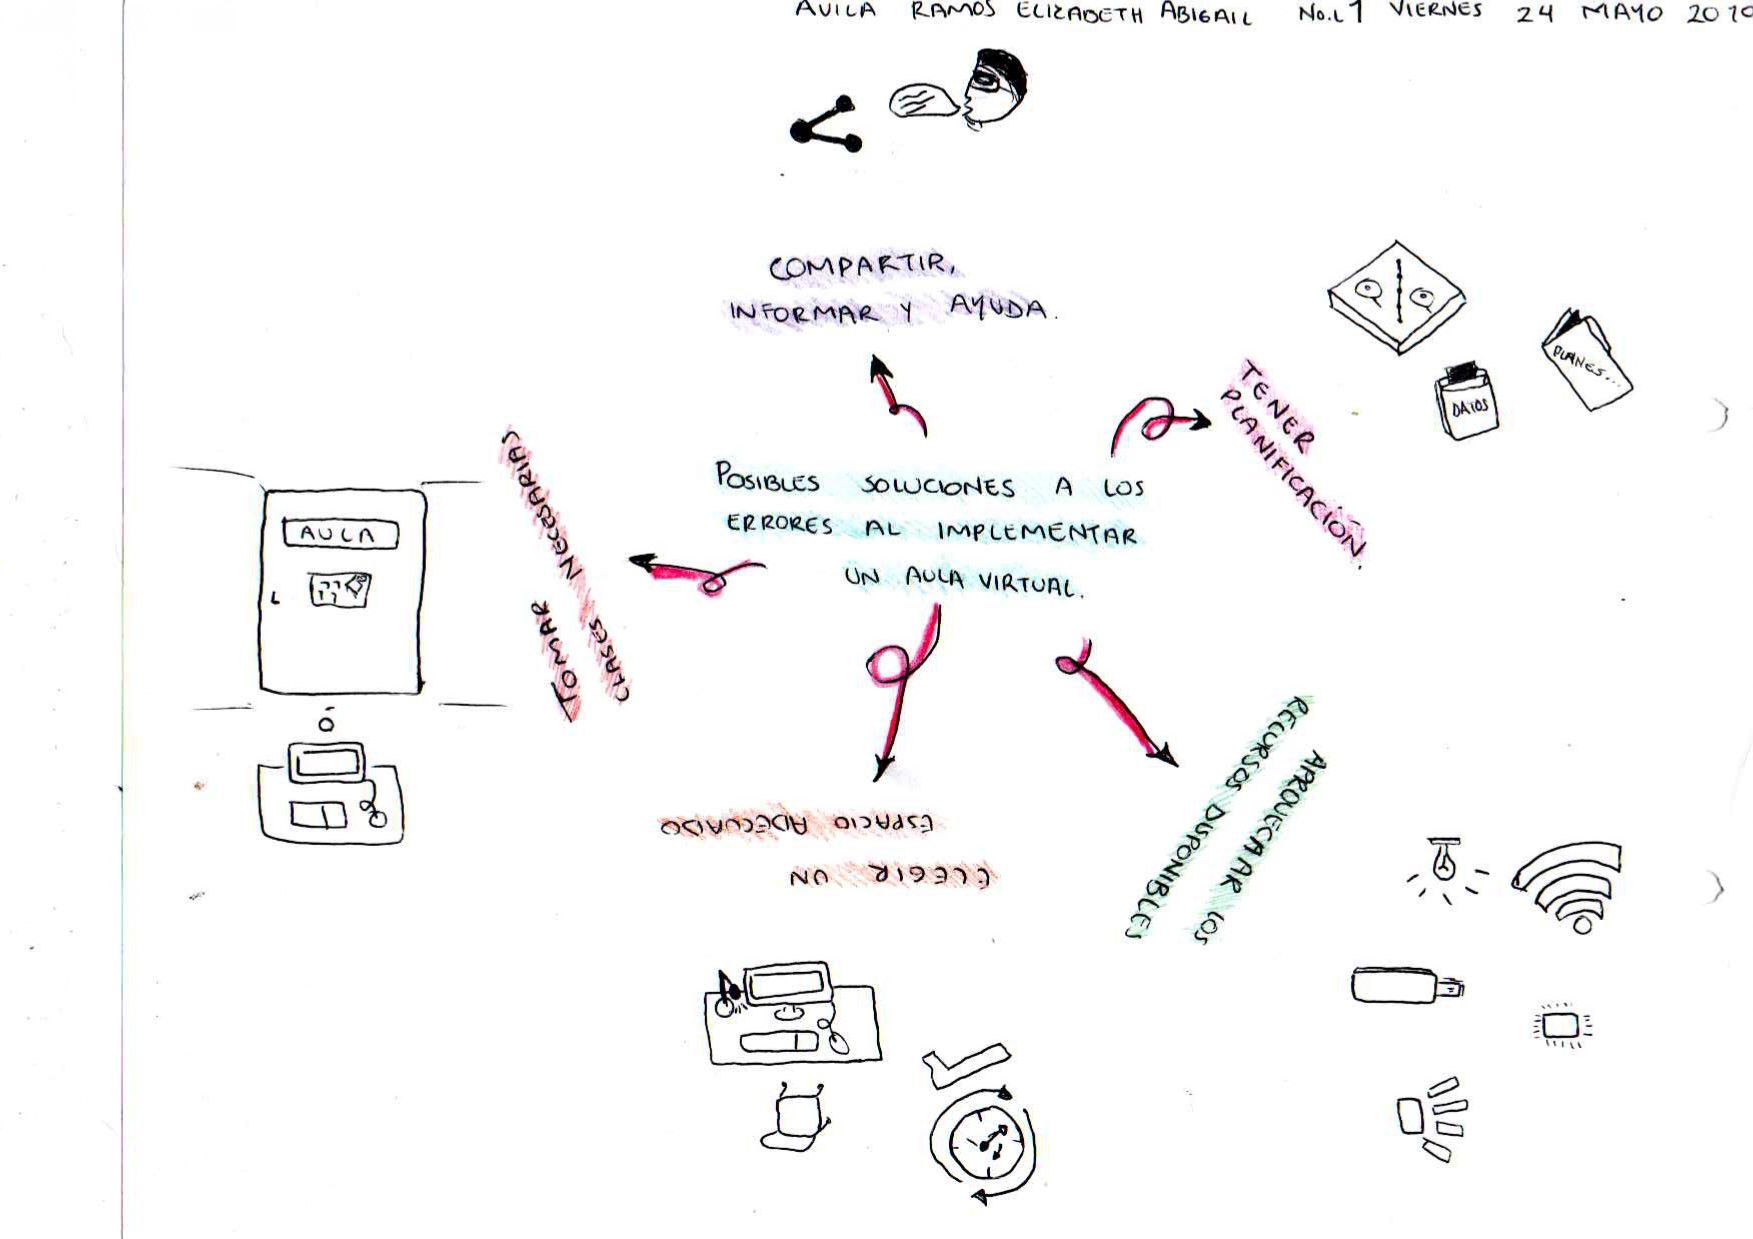 AVILA RAMOS ELIZABETH ABIGAIL No.L 1 VIERNES 24 MAYO 2019
COMPARTIR,
INFORMAR Y AYUDA.
TENER
PLANIFICACIÓN.
PLANES...
DATOS
POSIBLES SOLUCIONES A LOS
ERRORES AL IMPLEMENTAR
UN AULA VIRTUAL.
TOMAR
CLASES NECCESARIAS
AULA
Ó
ELEGIR UN
ESPACIO ADECUADO
APROVECAAR LOS
RECURSOS DISPONIBLES